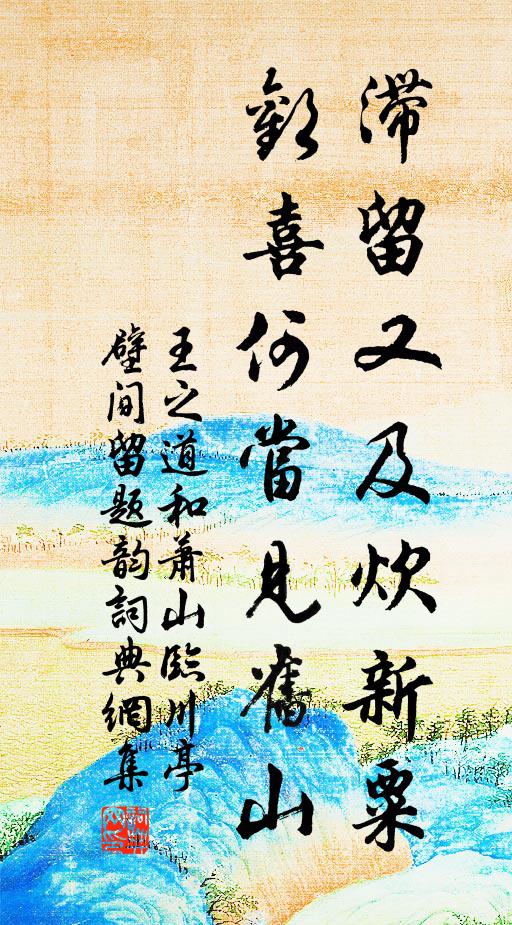 滯留又及炊新粟
歡喜何當見舊山
王之道和蕭山臨川亭
壁间留题韵詞典網集